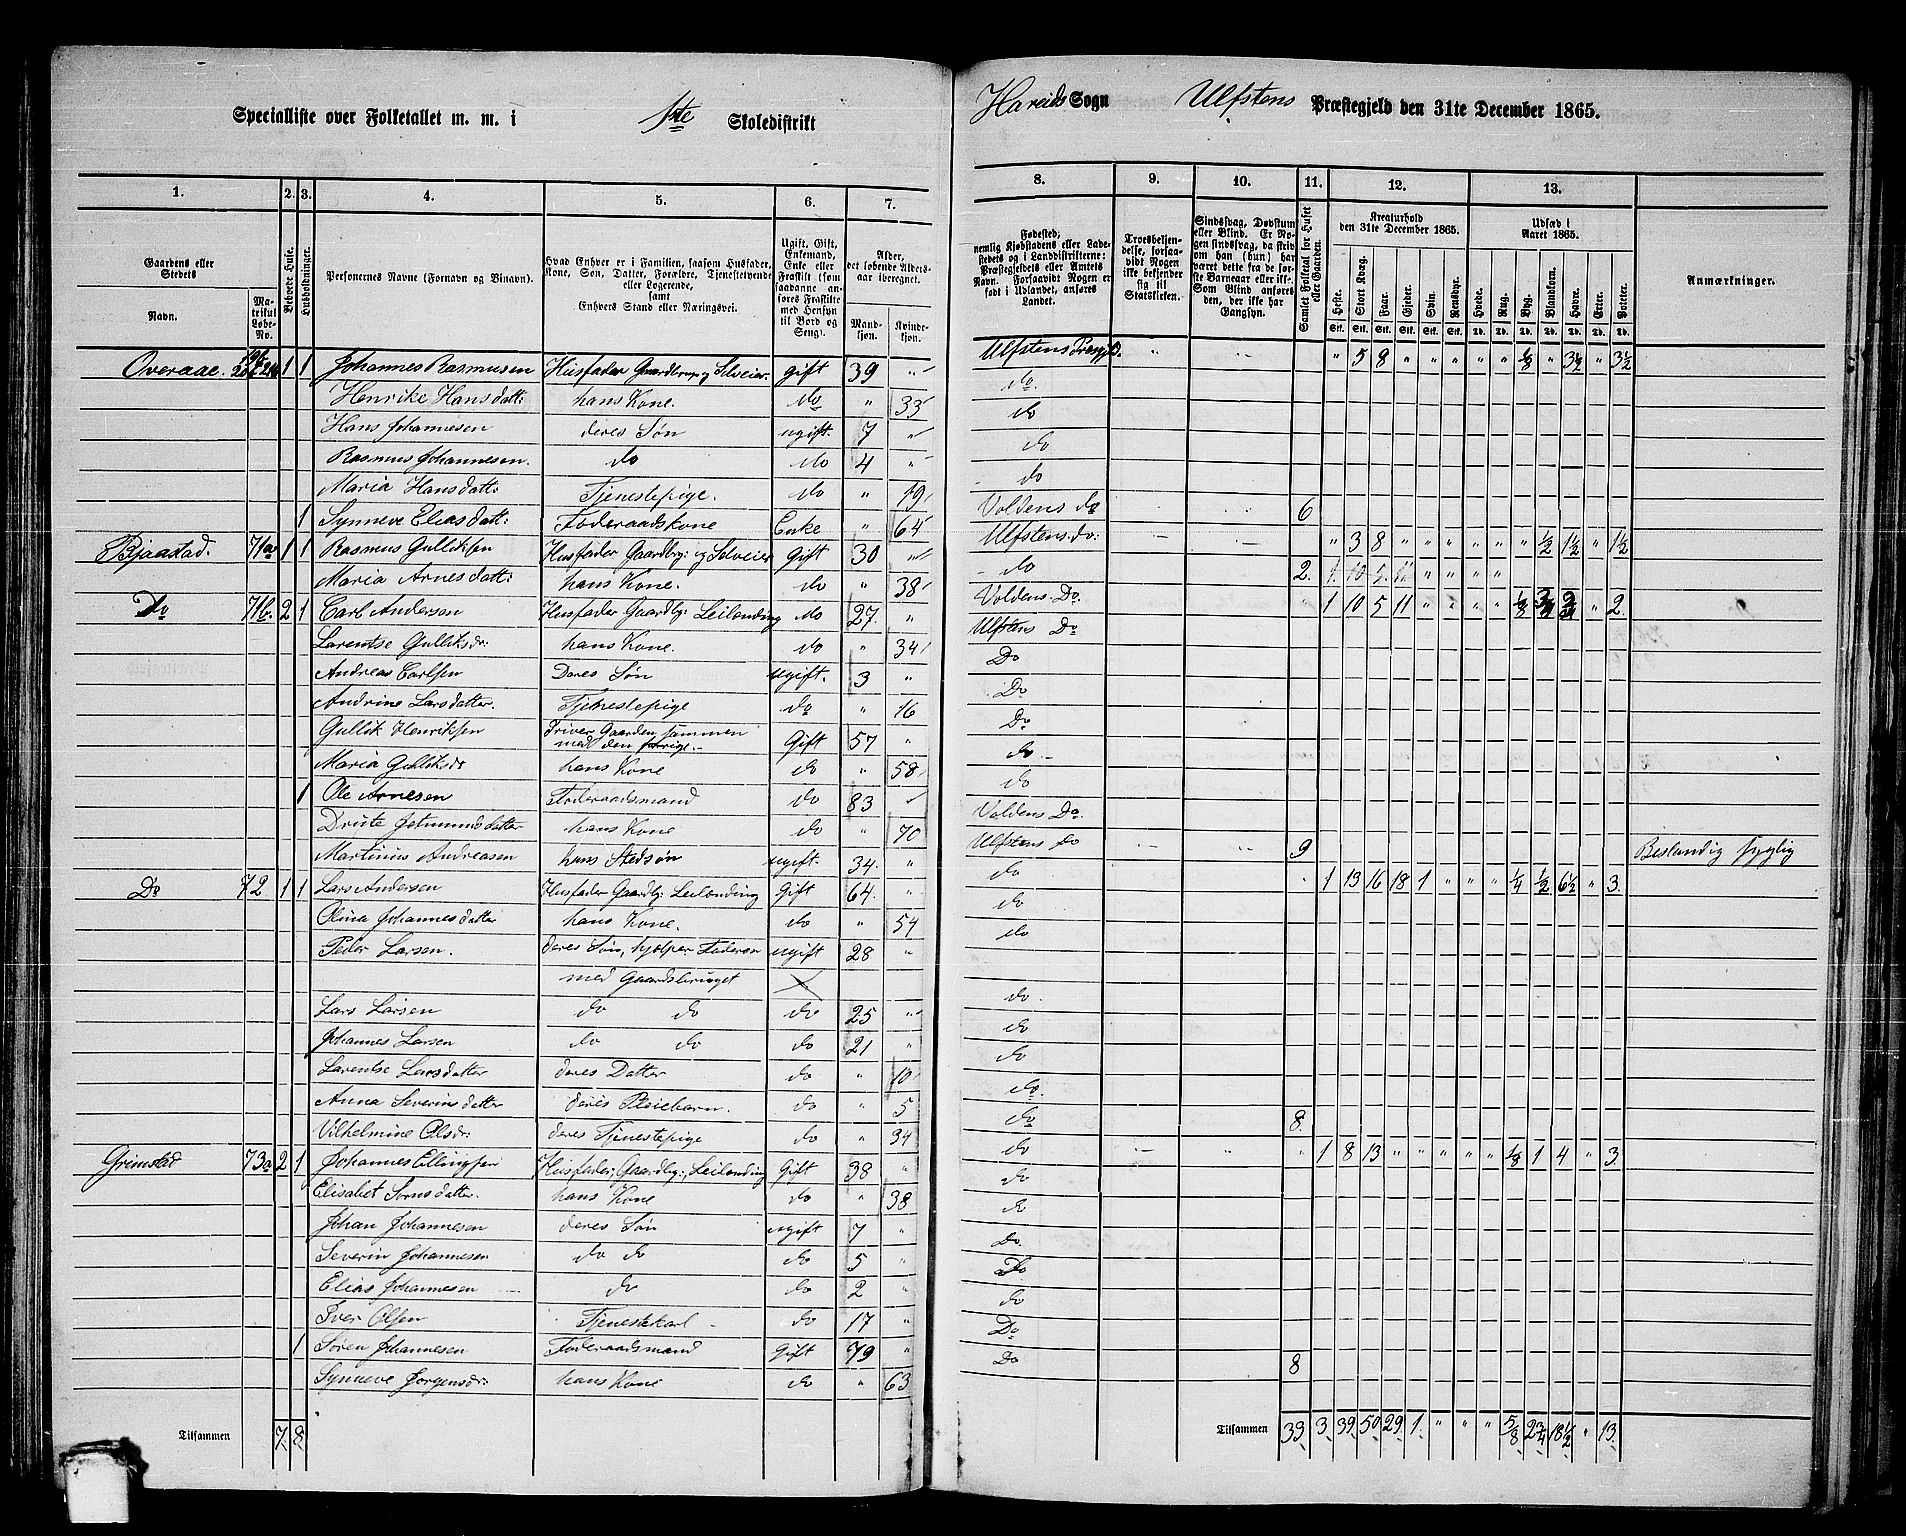 Specialliste over Folketallet m. m. i 1ste Skoledistrikt Hareids Sogn Ulfstens Præstegjeld den 31te December 1865.
1. 2. 3. 4. 5. 6. 7. 8. 9. 10. 11. 12. 13.
Gaardens eller Stedets Navn. Matrikul Løbe-No. Beboede Huse. Husholdninger. Personernes Navne (Fornavn og Binavn). Hvad Enhver er i Familien, saasom Husfader, Kone, Søn, Datter, Forældre, Tjenestetyende eller Logerende, samt Enhvers Stand eller Næringsvei. Ugift, Gift, Enkemand, Enke eller Fraskilt (som saadanne anføres Fraskilte med Hensyn til Bord og Seng). Alder, det løbende Aldersaar iberegnet. Mandkjøn. Kvindekjøn.
Fødested, nemlig Kjøbstadens eller Ladestedets og i Landdistrikterne: Præstegjeldets eller Amtets Navn. Forsaavidt Nogen er født i Udlandet, anføres Landet. Troesbekjendelse, forsaavidt Nogen ikke bekjender sig til Statskirken. Sindssvag, Døvstum eller Blind. Er Nogen sindssvag, da skrives om han (hun) har været dette fra de første Barneaar eller ikke. Som Blind anføres den, der ikke har Gangsyn. Samlet Folketal for Huset eller Gaarden. Kreaturhold den 31te December 1865. Udsæd i Aaret 1865. Anmærkninger.
Heste. Stort Kvæg. Faar. Gjeder. Svin. Rensdyr. Hvede. Rug. Byg. Blandkorn. Havre. Erter. Poteter.
Overaae. 1 1 Johannes Rasmusen Husfader Gaardbrug og Selveier. gift 39 " Ulfstens Præsgjd. " " " 5 8 " " " " " 1/8 " 3 1/2 " 3 1/2
Henrike Hansdatt: hans Kone. do " 33 do.
Hans Johannesen deres Søn ugift. 7 " do
Rasmus Johannesen. do do 4 " do
Maria Hansdatt: Tjenestepige. do " 19 do
1 Synneve Eliasdatt: Foderaadskone Enke " 64 Voldens do 6
Bjaastad. 71a 1 1 Rasmus Gulliksen Husfader Gaardbr: og Selveier Gift 30 " Ulfstens do: " 3 8 " " " " " " 1/2 1 1/2 " 1 1/2
Maria Arnesdatt: hans Kone. do " 38 do 2.
Do 71b. 2 1 Carl Andersen Husfader Gaardbr: Leilending do 27. " Voldens Do " 1 10 5 11 " " " " 1/8 " 2.
Larentse Gulliksdr: hans Kone. do " 34 Ulfstens Do
Andreas Carlsen Deres Søn ugift. 3 " Do
Andrine Larsdatter. Tjenestepige do " 16 Do
Gullik Henriksen Driver Gaarden sammen med den forrige. Gift 57 " Do
Maria Gulliksdr hans Kone do " 58 do
1 Ole Arnesen Foderaadsmand do 83 " do
Drute Jetmundsdatter hans Kone do " 70 Voldens Do.
Martinus Andreasen hans Stedsøn ugift. 34. " Ulfstens Do 9
Do 72 1 1 Lars Andersen Husfader Gaardbr: Leilending Gift 64. " do " 1 13 16 18 1 " " " 1/4 1/2 6 1/2 " 3.
Olina Johannesdatter hans Kone. do " 54 do
Peder Larsen. deres Søn, hjælper Faderen ugift 28 " do
med Gaardsbruget
Lars Larsen do do do 25 " do.
Johannes Larsen do do do 21 " do
Larentse Larsdatter deres Datter do " 10 do
Anna Severinsdatter deres Pleiebarn. do " 5 do.
Vilhelmine Olsdr: deres Tjenestepige do " 34 do 8.
Grimstad 73a 2 1 Johannes Ellingsen Husfader: Gaardbr: Leilending Gift 38 " do " " " 1 8 13 " " " " " 1/8 1 4 " 3.
Elisabet Sørnsdatter. hans Kone do " 38 do
Johan Johannesen deres Søn ugift 7 " do
Severin Johannesen do do do 5 " Do.
Elias Johannesen do do 2 " Do
Iver Olsen Tjenestekarl do 17 " do
1 Søren Johannesen Foderaadsmand Gift 79 " Do
Synneve Jørgensdr: hans Kone do " 63 Do 8
Tilsammen 7. 8. Tilsammen 33 3. 39. 50 29. 1. " " " 5/8 2 3/4 18 1/2 " 13.